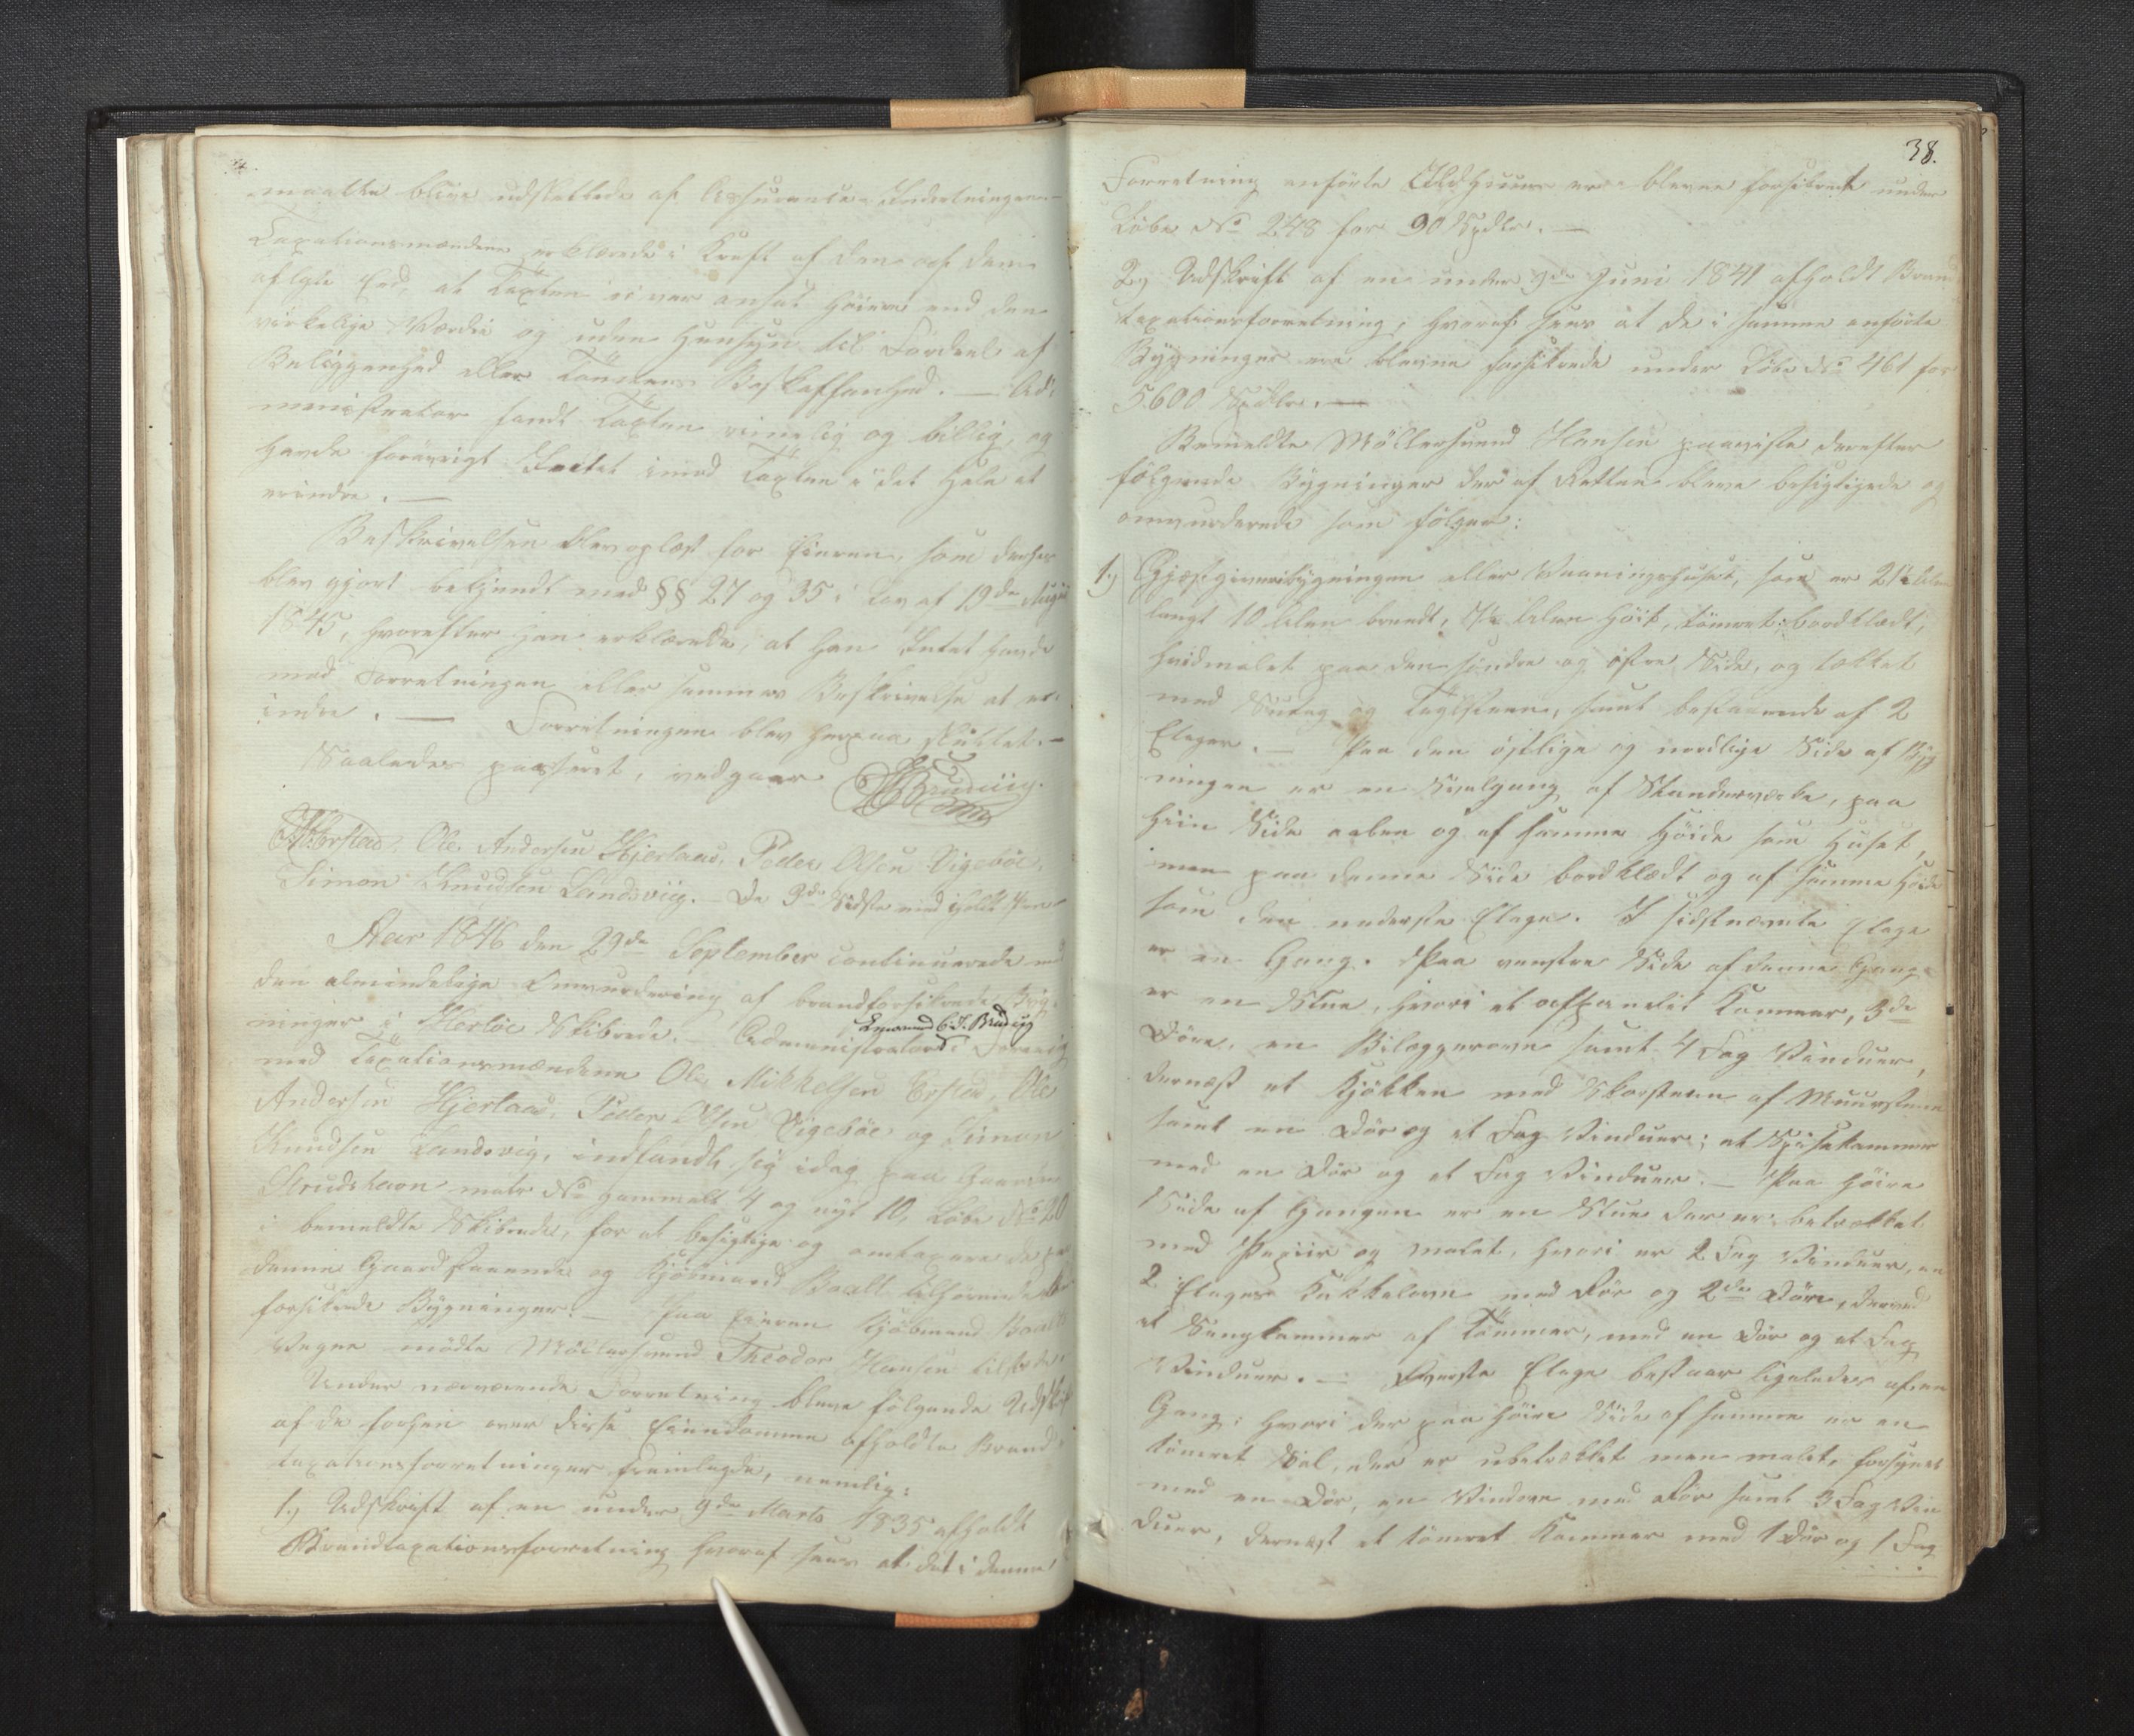 maatte blive udslettede af Assurance-Indretningen. —
Taxationsmændene erklærede i Kraft af den af dem
aflagte Eed, at Taxten ei var ansat høiere end den
virkelige Værdie og uden Hensyn til Fordeel af
Beliggenhed eller Tomtens Beskaffenhed. — Ad-
ministrator fandt Taxten rimelig og billig, og
havde forøvrigt Intet imod Taxten i det Hele at
erindre. —
Beskrivelsen blev oplæst for Eieren, som derhos
blev gjort bekjendt med §§ 27 og 35 i Lov af 19de August
1845, hvorefter han erklærede, at han Intet havde
mod Forretningen eller sammes Beskrivelse at er-
indre. — Forretningen blev herpaa sluttet. —
Saaledes passeret, vedgaaer Brudviig.
Ole Andersen Hjertaas, Peder Olsen Vigebøe,
Simon Knudsen Landsviig. — De 3de Sidste med iholdt Pen
Aar 1846 den 29de September continuerede med
den almindelige Omvurdering af brandforsikrede Byg-
ninger i Herløe Skibrede. — Administrator i Forening
Lensmand C. J. Brudviig
med Taxationsmændene Ole Mikkelsen Erstad, Ole
Andersen Hjertaas, Peder Olsen Vigebøe og Simon
Knudsen Landsvig, indfandt sig idag paa Gaarden
matr No gammelt 4 og nyt 10, Løbe No 20
i bemeldte Skibrede, for at besigtige og omtaxere de paa
denne Gaard staaende og Kjøbmand tilhørende
forsikrede Bygninger. — Paa Eieren Kjøbmand
Vegne mødte Møllersvend Theodor Hansen tilstede.
Under nærværende Forretning bleve følgende Udskrift
af de forhen over disse Eiendomme afholdte Brand-
taxationsforretninger fremlagde, nemlig:
1.) Udskrift af en under 9de Marts 1835 afholdt
Brandtaxationsforretning hvoraf sees at det i denne
38.
Forretning anførte Ildhuus er bleven forsikret under
Løbe No 248 for 90 Spdlr. —
2.) Udskrift af en under 9de Juni 1841 afholdt Brand
taxationsforretning, hvoraf sees at de i samme anførte
Bygninger ere blevne forsikrede under Løbe No 461 for
5600 Spdlr. —
Bemeldte Møllersvend Hansen paaviste derefter
følgende Bygninger der af Retten bleve besigtigede og
omvurderede som følger:
1.) Gjæstgiveribygningen eller Vaaningshuset, som er 21½ Alen
langt 10 Alen bredt, 7½ Alen høit, tømret, bordklædt,
hvidmalet paa den søndre og østre Side, og tækket
med Sutag og Taglsteen, samt bestaaende af 2
Etager. — Paa den østlige og nordlige Side af Byg
ningen er en Svalgang af Standerværke, paa
hiin Side aaben og af samme Høide som Huset,
men paa denne Side bordklædt og af samme Høide
som den nederste Etage. I sidstnævnte Etage
er en Gang. Paa venstre Side af denne Gang
er en Stue, hvori et afpanelet Kammer, 3de
Døre, en Bilæggerovn samt 4 Fag Vinduer,
dernæst et Kjøkken med Skorsteen af Muursteen
samt en Dør og et Fag Vinduer; et Spisekammer
med en Dør og et Fag Vinduer. — Paa høire
Side af Gangen er en Stue der er betrækket
med Papiir og malet, hvori er 2 Fag Vinduer, en
2 Etages Kakkelovn med Rør og 2de Døre, derved
et Sengkammer af Tømmer, med en Dør og et Fag
Vinduer. — Øverste Etage bestaar ligeledes af en
Gang, hvori der paa høire Side af samme er en
tømret Sal, der er ubetrækket men malet, forsynet
med en Dør, en Vindovn med Rør samt 3 Fag Vin
duer, dernæst et tømret Kammer med 1 Dør og 1 Fag